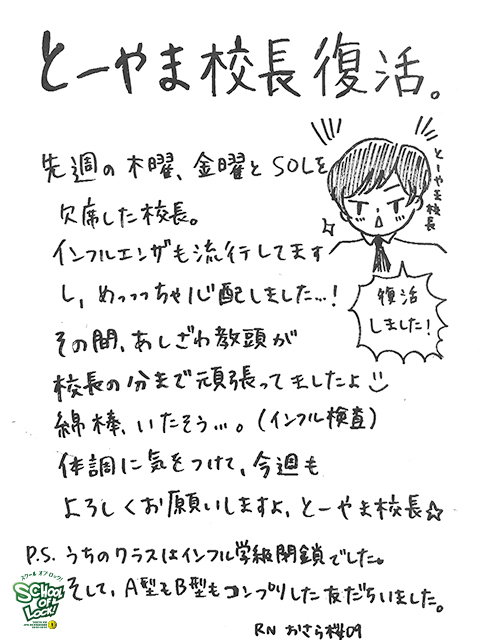 とーやま校長復活。
先週の木曜、金曜とSOLを
欠席した校長。
インフルエンザも流行してます
し、めっっっちゃ心配しました…!
その間、あしざわ教頭が
校長の分まで頑張ってましたよ
綿棒、いたそう…。(インフル検査)
体調に気をつけて、今週も
よろしくお願いしますよ、とーやま校長☆
とーやま校長
復活
しました!
P.S. うちのクラスはインフル学級閉鎖でした。
そして、A型もB型もコンプリした友だちいました。
RN おさら桜09
スクール オブ ロック!
SCHOOL
OF
LOCK!